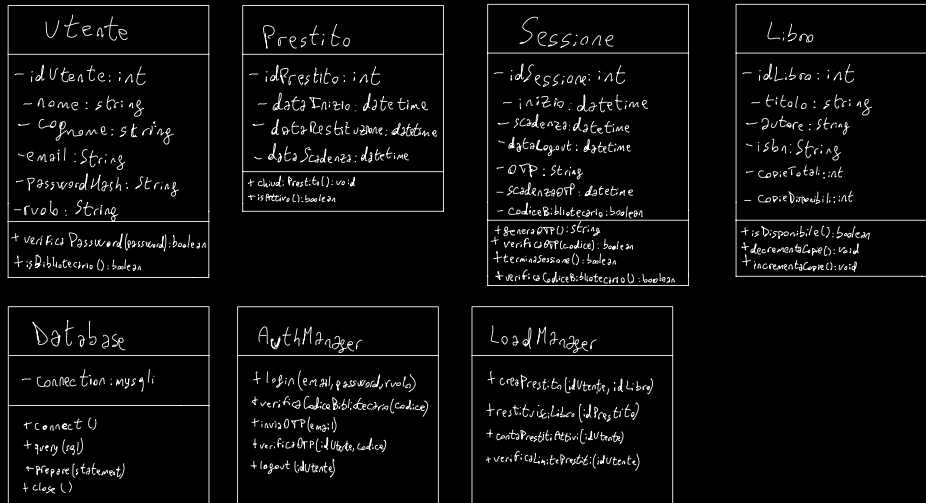 Utente
- idUtente: int
- nome: string
- cognome: string
- email: String
- passwordHash: String
- ruolo: String
+ verificaPassword(password): boolean
+ isBibliotecario(): boolean
Prestito
- idPrestito: int
- dataInizio: datetime
- dataRestituzione: datetime
- dataScadenza: datetime
+ chiudiPrestito(): void
+ isAttivo(): boolean
Sessione
- idSessione: int
- inizio: datetime
- scadenza: datetime
- dataLogout: datetime
- OTP: String
- scadenzaOTP: datetime
- codiceBibliotecario: boolean
+ generaOTP(): String
+ verificaOTP(codice): boolean
+ terminaSessione(): boolean
+ verificaCodiceBibliotecario(): boolean
Libro
- idLibro: int
- titolo: string
- autore: String
- isbn: String
- copieTotali: int
- copieDisponibili: int
+ isDisponibile(): boolean
+ decrementaCopie(): void
+ incrementaCopie(): void
Database
- connection: mysqli
+ connect()
+ query(sql)
+ prepare(statement)
+ close()
AuthManager
+ login(email, password, ruolo)
+ verificaCodiceBibliotecario(codice)
+ inviaOTP(email)
+ verificaOTP(idUtente, codice)
+ logout(idUtente)
LoadManager
+ creaPrestito(idUtente, idLibro)
+ restituisciLibro(idPrestito)
+ contaPrestitiAttivi(idUtente)
+ verificaLimitePrestiti(idUtente)